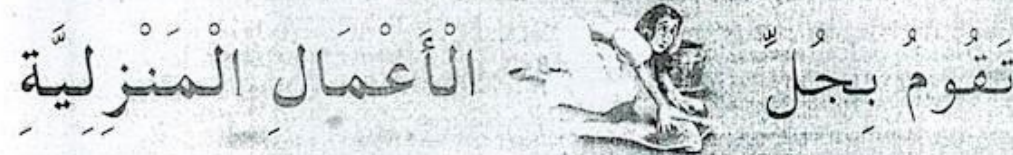 تَقُومُ بِجُلِّ الْأَعْمَالِ الْمَنْزِلِيَّةِ